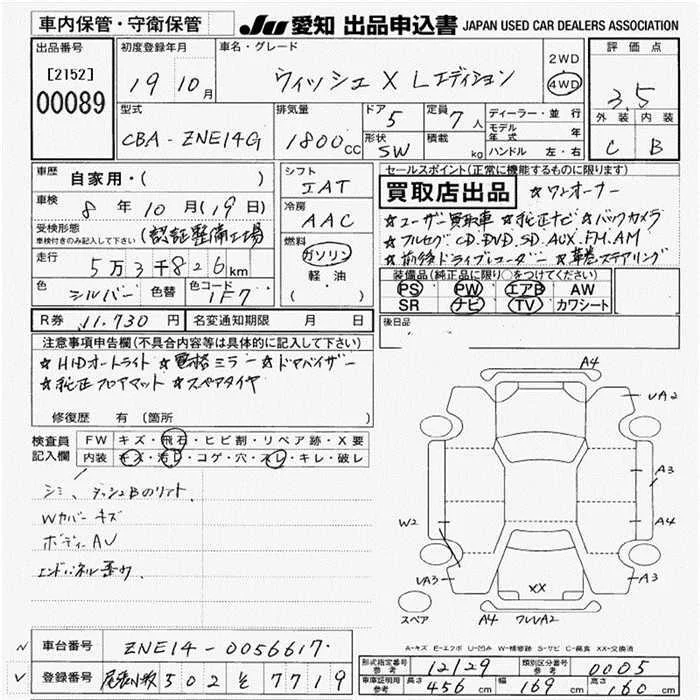 車内保管・守衛保管
JU 愛知 出品申込書 JAPAN USED CAR DEALERS ASSOCIATION
出品番号
[2152]
00089
初度登録年月
19 10月
車名・グレード
ウィッシュ X Lエディション
2WD
4WD
評価点
3.5
外装 内装
C B
型式
CBA-ZNE14G
排気量
1800cc
ドア 5
形状 SW
定員 7人
積載 kg
ディーラー・並行
モデル年式 年
ハンドル 左・右
車歴
自家用・( )
車検
8年 10月 (19日)
受検形態
車検付きのみ記入して下さい
(認証整備工場
走行
5万3千826km
色 シルバー 色替 色コード 1F7
シフト
IAT
冷房
AAC
燃料
ガソリン
軽・油
( )
セールスポイント(正常に機能するものに限ります)
買取店出品 ☆ワンオーナー
☆ユーザー買取車 ☆純正ナビ ☆バックカメラ
☆フルセグ CD.DVD.SD.AUX.FM.AM
☆前後ドライブレコーダー ☆革巻ステアリング
装備品(純正品に限り○をつけてください)
PS PW エアB AW
SR ナビ TV カワシート
後日品
R券 11.730円 名変通知期限 月 日
注意事項申告欄(不具合内容等は具体的に記入して下さい)
☆HIDオートライト ☆電格ミラー ☆ドアバイザー
☆純正フロアマット ☆スペアタイヤ
修復歴 有 (箇所 )
検査員記入欄
FW キズ・飛石・ヒビ割・リペア跡・X要
内装 キズ・汚レ・コゲ・穴・スレ・キレ・破レ
シミ、ダッシュBのリフト
Wカバーキズ
ボディーAU
A4
UA2
A3
A4
W2
UA3
XX
A3
スペア
A4
A-キズ E-エクボ U-凹み W-補修跡 S-サビ C-腐食 XX-交換済
車台番号 ZNE14-0056617
登録番号 尾張小牧 502 そ 7719
形式指定番号 参考 12129 類別区分番号 参考 0005
車庫証明用 参考 長さ 456cm 幅 169cm 高さ 160cm